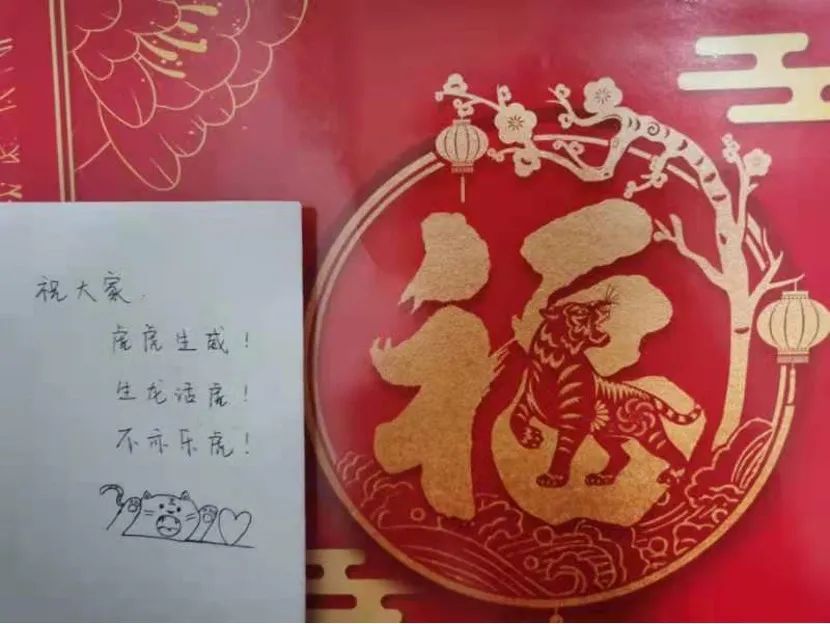 祝大家,
虎虎生威!
生龙活虎!
不亦乐虎!
福